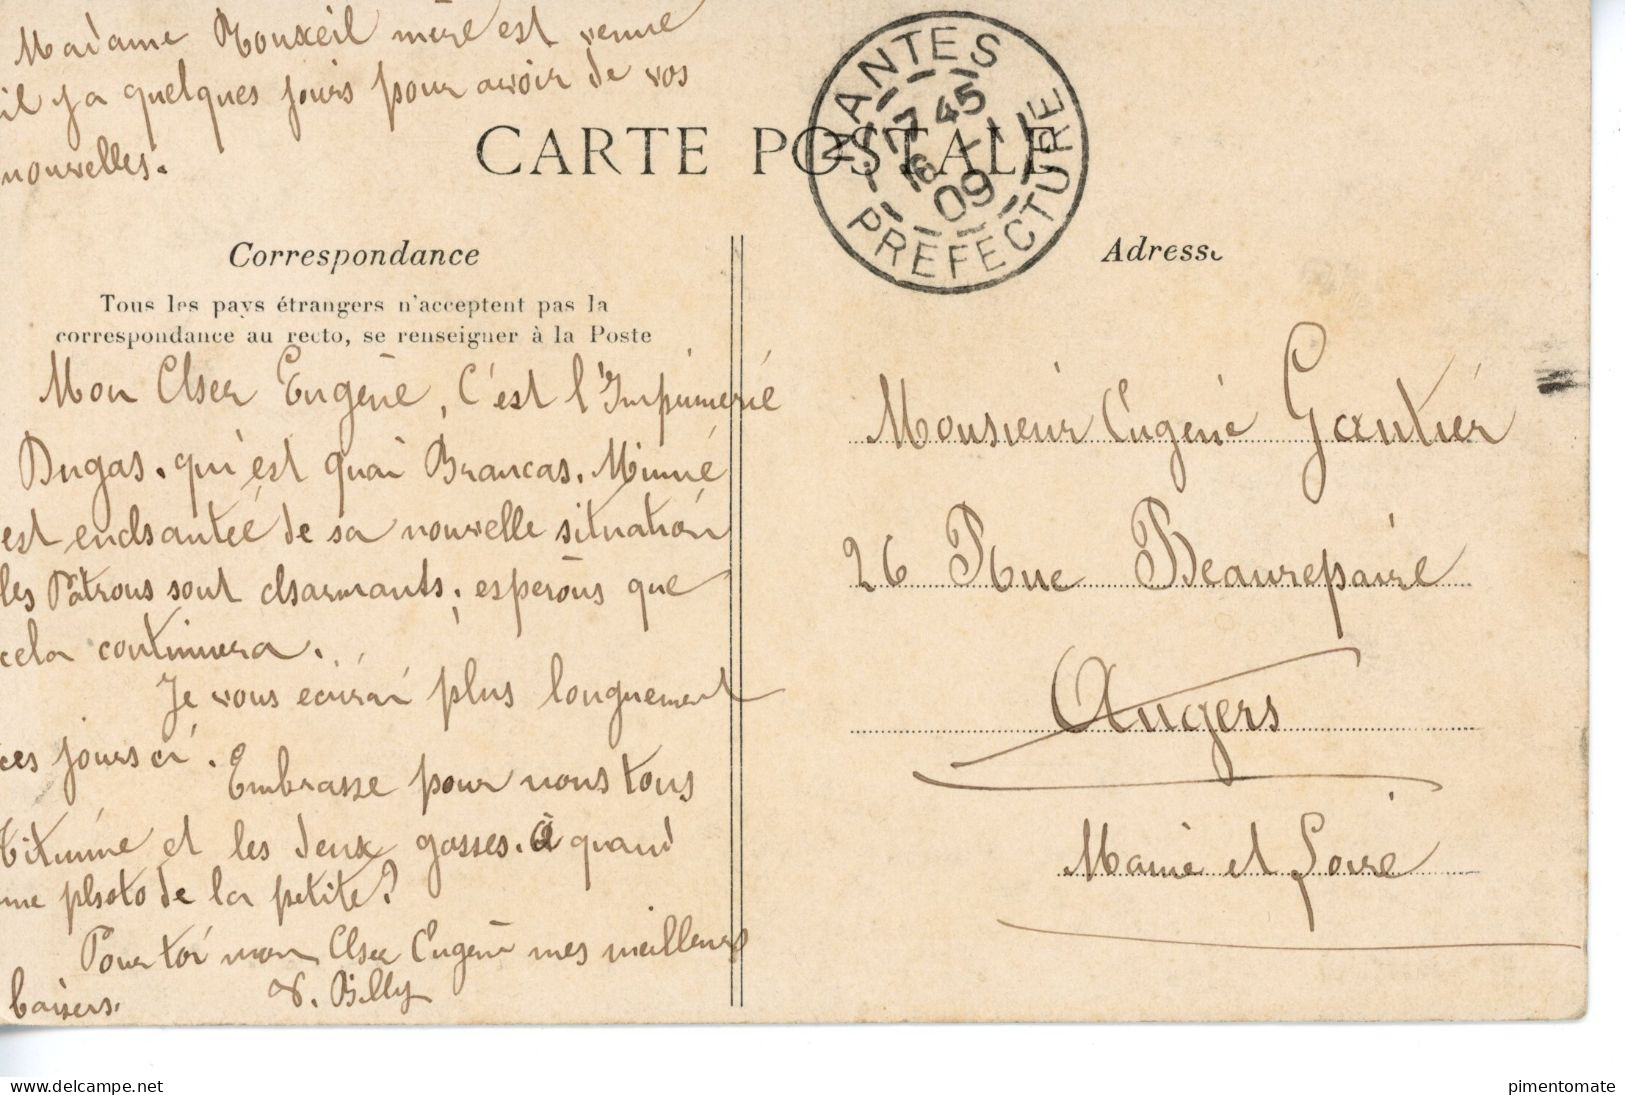 Madame Rouxeil mère est venue
il y a quelques jours pour avoir de vos
nouvelles.
CARTE POSTALE
NANTES
17 45
18 - 1
09
PREFECTURE
Correspondance
Adresse
Tous les pays étrangers n'acceptent pas la
correspondance au recto, se renseigner à la Poste
Mon Cher Eugène, C'est l'Imprimerie
Dugas. qui est Quai Brancas. Mimie
est enchantée de sa nouvelle situation
les Patrons sont charmants; espérons que
cela continuera.
Je vous écrirai plus longuement
ces jours ci.
Embrasse pour nous tous
Titinine et les deux gosses. à quand
une photo de la petite?
Pour toi mon Cher Eugène mes meilleurs
baisers. V. Billy
Monsieur Eugène Gautier
26 Rue Beaurepaire
Angers
Maine et Loire
www.delcampe.net
pimentomate